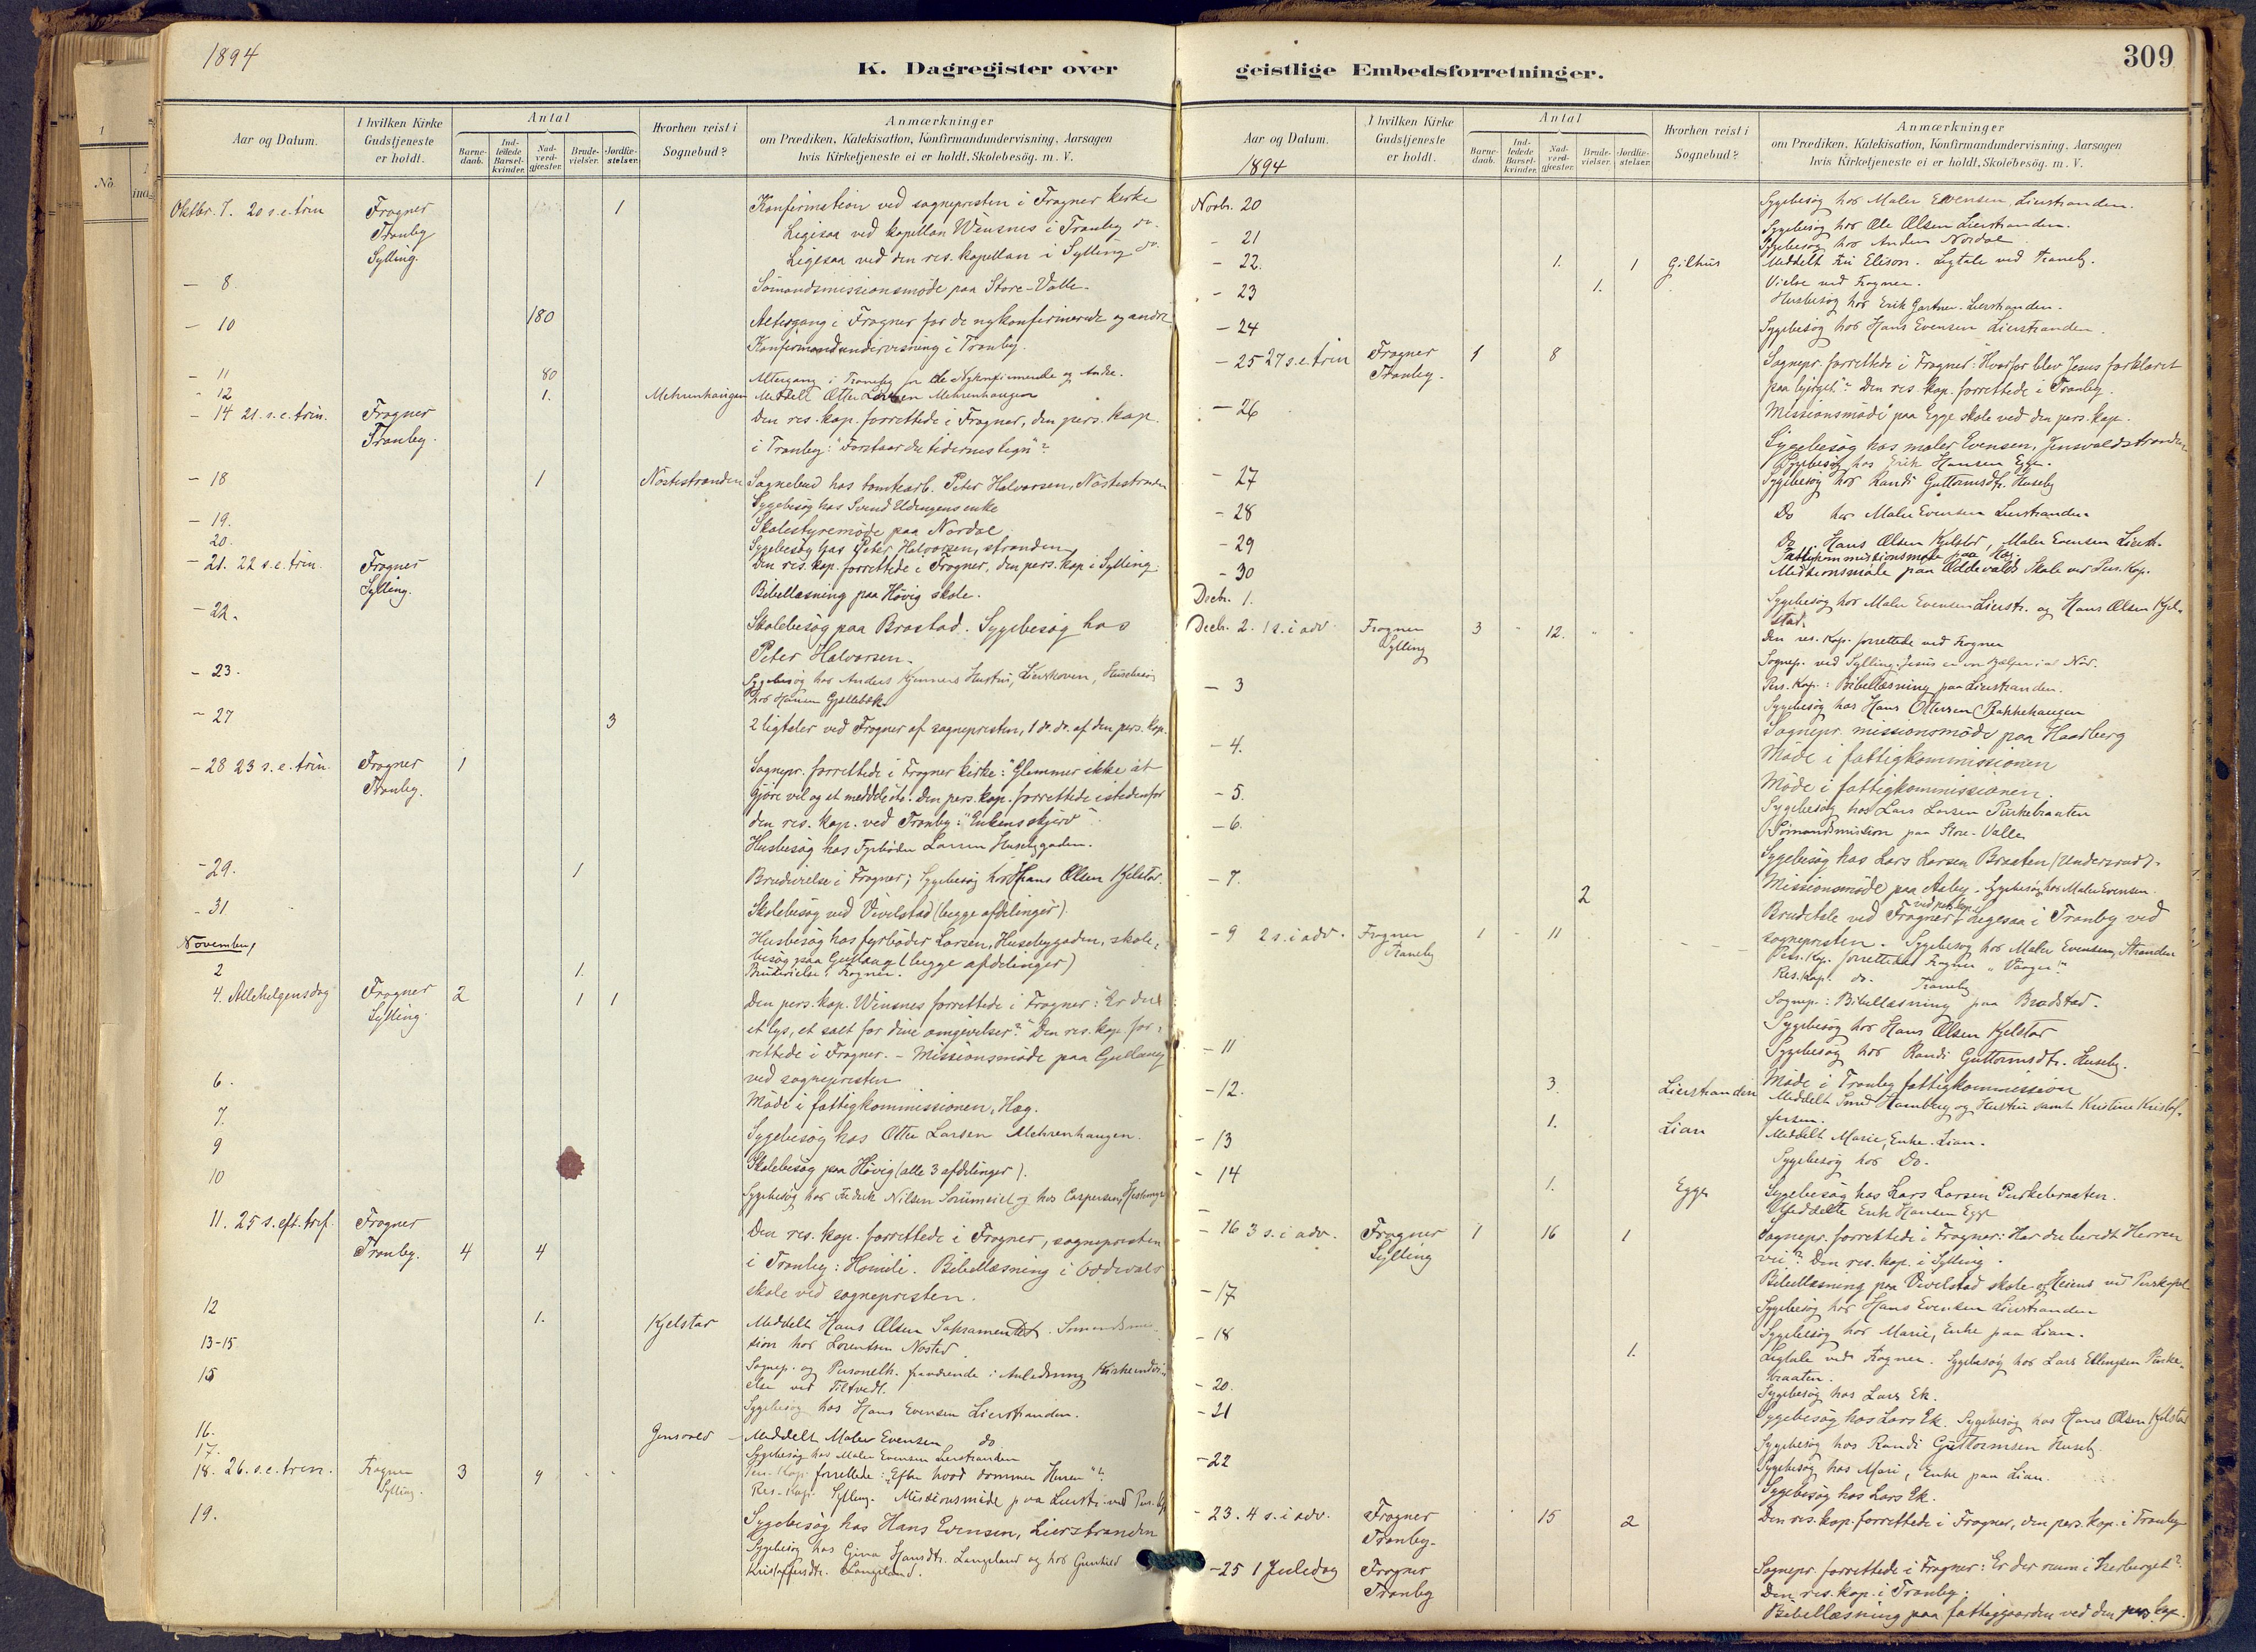 1894
K. Dagregister over
Aar og Datum.
I hvilken Kirke Gudstjeneste er holdt.
Antal
Barne-daab.
Ind-ledede Barsel-kvinder.
Nad-verd-gjæster.
Brude-vielser.
Jordfæ-stelser.
Hvorhen reist i Sognebud?
Anmærkninger
om Prædiken, Katekisation, Konfirmandundervisning, Aarsagen
hvis Kirketjeneste ei er holdt, Skolebesög. m. V.
Oktbr. 7. 20 s. e. trin Frogner 1 Konfirmation ved sognepresten i Frogner kirke
Tranby Ligesaa ved kapellan Winsnes i Tranby do.
Sylling. Ligesaa ved den res. kapellan i Sylling do.
- 8 Sömandsmissionsmöde paa Store-Valle.
- 10 180 Altergang i Frogner for de nykonfirmerede og andre
Konfirmandundervisning i Tranby.
- 11 80 Altergang i Tranby for de Nykonfirmerede og Andre.
- 12 1. Mehrenhaugen Meddelt Otter Larsen Mehrenhaugen
- 14 21. s. e. trin. Frogner Den res. kap. forrettede i Frogner, den pers. kap.
Tranby. i Tranby: "Forstaar du tidernes tegn"?
- 18 1 Nöstestranden Sognebud hos tomtearb. Peter Halvorsen, Nöstestranden
Sygebesög hos Svend enke
- 19. Skolestyremöde paa Nordal
20. Sygebesög hos Peter Halvorsen, stranden
- 21. 22 s. e. trin. Frogner Den res. kap. forrettede i Frogner, den pers. kap. i Sylling.
Sylling. Bibellæsning paa Hövig skole.
- 22. Skolebesög paa Brastad. Sygebesög hos
Peter Halvorsen.
- 23. Sygebesög hos Anders Hustru, Lierskoven, Husbesög
hos Hansen Gjellebæk
- 27 3 2 ligtaler ved Frogner af sognepresten, 1 do. do. af den pers. kap.
- 28 23 s. e. trin. Frogner 1 Sognepr. forrettede i Frogner kirke: "Glemmer ikke at
Tranby. gjöre vel og at meddele". Den pers. kap. forrettede istedenfor
den res. kap. ved Tranby: "Enkens skjerv".
Husbesög hos Fyrböder Larsen Husebygaden.
- 29. 1 Brudvielse i Frogner; Sygebesög hos Hans Olsen Kjelstad.
- 31 Skolebesög ved Vivelstad (begge afdelinger).
November Husbesög hos fyrböder Larsen, Husebygaden, skole-
besög paa Gullaug (begge afdelinger)
2 1. Brudevielse i Frogner.
4. Allehelgensdag Frogner 2 1 1 Den pers. kap. Winsnes forrettede i Frogner: "Er du
Sylling. et lys, et salt for dine omgivelser?" Den res. kap. for-
rettede i Frogner. - Missionsmöde paa Gullaug
ved sognepresten
6. Möde i fattigkommissionen, Hæg.
7. Sygebesög hos Otter Larsen Mehrenhaugen.
9 Skolebesög paa Hövig (alle 3 afdelinger).
10 Sygebesög hos Fredrik Nilsen og hos Caspersen,
11. 25 s. eft. tref. Frogner Den res. kap. forrettede i Frogner, sognepresten
Tranby. 4 4 i Tranby: Homili. Bibellæsning i Oddevals
skole ved sognepresten.
12 1. Kjelstad Meddelt Hans Olsen Sakramentet. Sömandsmis-
13-15 sion hos Lorentsen Nösted
15 Sognep. og Personelk. fraværende i Anledning Kirkeindvi-
else ved Filtvedt.
Sygebesög hos Hans Evensen Lierstranden.
16. Gensvold Meddelt Maler Evensen do
17. Sygebesög hos Maler Evensen Lierstranden
18. 26. s. e. trin. Frogner 3 9 Pers. Kap. forrettede: "Efter hvad dommer Herren"?
Sylling. Res. Kap. Sylling. Missionsmöde paa Lierstr. ved Pers. Kap.
19. Sygebesög hos Hans Evensen, Lierstranden
Sygebesög hos Gina Hansdtr. Langeland og hos Gunhild
Kristoffersdtr. Langeland.
309
geistlige Embedsforretninger.
Aar og Datum.
1894
I hvilken Kirke Gudstjeneste er holdt.
Antal
Barne-daab.
Ind-ledede Barsel-kvinder.
Nad-verd-gjæster.
Brude-vielser.
Jordfæ-stelser.
Hvorhen reist i Sognebud?
Anmærkninger
om Prædiken, Katekisation, Konfirmandundervisning, Aarsagen
hvis Kirketjeneste ei er holdt, Skolebesög. m. V.
Novbr. 20 Sygebesög hos Maler Evensen, Lierstranden.
Sygebesög hos Ole Olsen Lierstranden.
- 21 Sygebesög hos Anders Nordal
- 22. 1. 1 Gilhus Meddelt Fru Elison. Ligtale ved Tranby.
- 23 1. Vielse ved Frogner.
Husbesög hos Erik Gartner Lierstranden.
- 24 Sygebesög hos Hans Evensen Lierstranden.
- 25 27 s. e. trin Frogner 1 8 Sognepr. forrettede i Frogner: "Hvorfor blev Jesus forklaret
Tranby. paa bjerget"? Den res. kap. forrettede i Tranby.
- 26 Missionsmöde paa Egge skole ved den pers. kap.
Sygebesög hos maler Evensen, Jensvoldstranden
Sygebesög hos Erik Hansen Egge.
- 27 Sygebesög hos Randi Guttormsdtr. Huseby
- 28 Do hos Maler Evensen Lierstranden
- 29 Do. Hans Olsen Kjelstad, Maler Evensen Lierstr.
Fattigkommissionsmöde paa Hæg.
- 30 Missionsmöde paa Oddevalds Skole ved Pers. Kap.
Decbr. 1. Sygebesög hos Maler Evensen Lierstr. og Hans Olsen Kjel-
stad.
Decbr. 2. 1 s. i adv. Frogner 3 - 12. Den res. Kap. forrettede ved Frogner
Sylling Sognep. ved Sylling: Jesus er vor Hjælper i al Nöd.
- 3 Pers. Kap.: Bibellæsning paa Lierstranden.
Sygebesög hos Hans Ottersen Bakkehaugen
- 4. Sognepr. missionsmöde paa Haarberg
Möde i fattigkommissionen
- 5. Möde i fattigkommissionen.
Sygebesög hos Lars Larsen Purkebraaten
- 6. Sömandsmission paa Store-Valle
Sygebesög hos Lars Larsen Braaten (Undersrud).
- 7. Missionsmöde paa Aaby. Sygebesög hos Maler Evensen.
2 Brudetale ved Frogner ved pers. kap. Ligesaa i Tranby ved
sognepresten. Sygebesög hos Maler Evensen, Stranden
- 9 2 s. i adv. Frogner 1 - 11 Pers. Kap. forrettede ved Frogner "Vaager!"
Tranby Res. Kap. do. Tranby
Sognep.: Bibellæsning paa Bradstad.
Sygebesög hos Hans Olsen Kjelstad
- 11 Sygebesög hos Randi Guttormsdtr. Huseby.
Möde i Tranby fattigkommission
- 12. 3 Lierstranden Meddelt Smed Hamberg og Hustru samt Kristine Kristof-
fersen.
- 13 1. Lian Meddelt Marie, Enke Lian.
- 14 Sygebesög hos Do.
Sygebesög hos Lars Larsen Purkebraaten.
1. Egge Meddelte Erik Hansen Egge
- 16 3 s. i adv. Frogner 1 16 1 Sognepr. forrettede i Frogner: Har du beredt Herren
Sylling vei"? Den res. kap. i Sylling.
- 17 Bibellæsning paa Vivelstad skole ved Perskapel
Sygebesög hos Hans Evensen Lierstranden
- 18 Sygebesög hos Marie, Enke paa Lian.
1. Ligtale ved Frogner. Sygebesög hos Lars Ellingsen Purke-
braaten.
- 20. Sygebesög hos Lars Ek.
- 21 Sygebesög hos Lars Ek. Sygebesög hos Hans Olsen Kjelstad
Sygebesög hos Randi Guttormsen Huseby.
- 22 Sygebesög hos Mari, Enke paa Lian.
Sygebesög hos Lars Ek.
- 23. 4 s. i adv. Frogner 15 2 Den res. kap. forrettede i Frogner, den pers. kap. i Tranby
Tranby.
- 25 1 Juledag Frogner Sognepr. forrettede i Frogner: Er der rum i herberget?
Tranby Den res. kap. i Tranby.
Bibellæsning paa fattiggaarden ved den pers. kap.